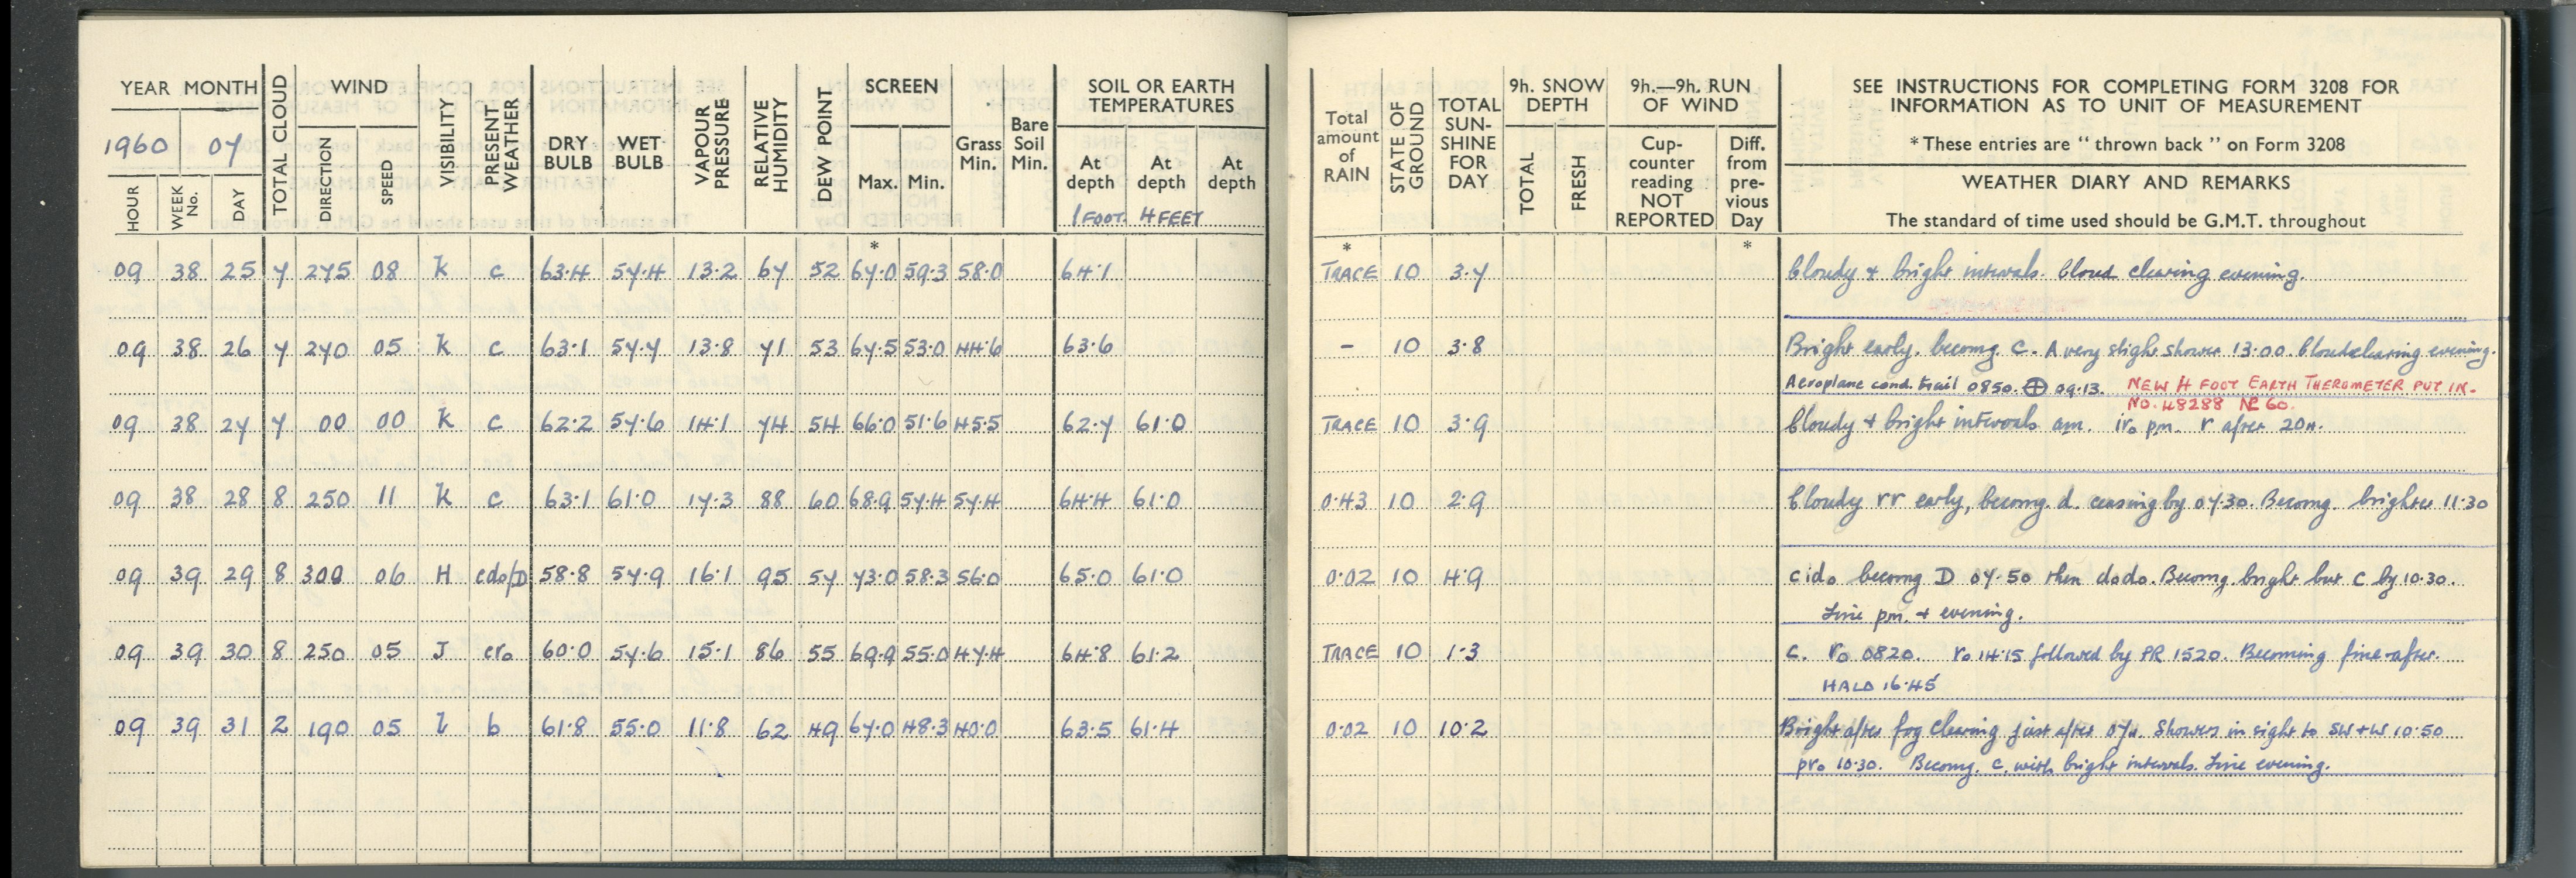 YEAR MONTH
1960 07
HOUR
WEEK No.
DAY
TOTAL CLOUD
WIND
DIRECTION
SPEED
VISIBILITY
PRESENT WEATHER
DRY BULB
WET BULB
VAPOUR PRESSURE
RELATIVE HUMIDITY
DEW POINT
SCREEN
Max. Min.
*
Grass Min.
Bare Soil Min.
SOIL OR EARTH
TEMPERATURES
At depth At depth At depth
1 FOOT. 4 FEET
09 38 25 7 275 08 K c 63.4 57.4 13.2 67 52 67.0 59.3 58.0 64.1
09 38 26 7 270 05 K c 63.1 57.7 13.8 71 53 67.5 53.0 44.6 63.6
09 38 27 7 00 00 K c 62.2 57.6 14.1 74 54 66.0 51.6 45.5 62.7 61.0
09 38 28 8 250 11 K c 63.1 61.0 17.3 88 60 68.9 57.4 57.4 64.4 61.0
09 39 29 8 300 06 H cdo/D 58.8 57.9 16.1 95 57 73.0 58.3 56.0 65.0 61.0
09 39 30 8 250 05 J cro 60.0 57.6 15.1 86 55 69.9 55.0 47.4 64.8 61.2
09 39 31 2 190 05 L b 61.8 55.0 11.8 62 49 67.0 48.3 40.0 63.5 61.4
Total amount of RAIN
*
STATE OF GROUND
TOTAL SUN- SHINE FOR DAY
9h. SNOW DEPTH
TOTAL
FRESH
9h.—9h. RUN OF WIND
Cup- counter reading NOT REPORTED
Diff. from pre- vious Day
*
SEE INSTRUCTIONS FOR COMPLETING FORM 3208 FOR
INFORMATION AS TO UNIT OF MEASUREMENT
* These entries are “ thrown back ” on Form 3208
WEATHER DIARY AND REMARKS
The standard of time used should be G.M.T. throughout
TRACE 10 3.7 Cloudy + bright intervals. Cloud clearing evening.
- 10 3.8 Bright early. becomg. c. A very slight shower 13.00. Cloud clearing evening.
Aeroplane cond. trail 0850. ⊕ 09.13. NEW 4 FOOT EARTH THEROMETER PUT IN.
NO. 48288 NE 60.
TRACE 10 3.9 Cloudy + bright intervals am. iro pm. r after 20H.
0.43 10 2.9 Cloudy rr early, becomg. d. ceasing by 07.30. Becomg. brighter 11.30
0.02 10 4.9 cido becomg D 07.50 then dodo. Becomg. bright but c by 10.30.
Fine pm. + evening.
TRACE 10 1.3 c. ro 0820. ro 14.15 followed by PR 1520. Becoming fine after.
HALO 16.45
0.02 10 10.2 Bright after fog clearing just after 07H. Showers in sight to SW + W 10.50
pro 10.30. Becomg. c. with bright intervals. Fine evening.